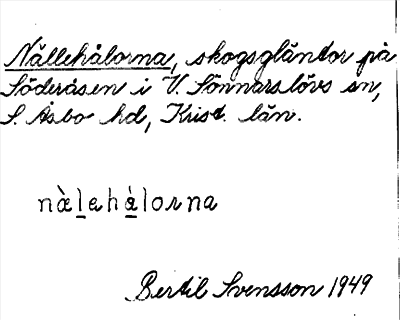 Nällehålorna, skogsgläntor på
Söderåsen i V. Sönnarslövs sn,
S. Åsbo hd, Krist. län.
næ̀lehȧ̀lorna
Bertil Svensson 1949